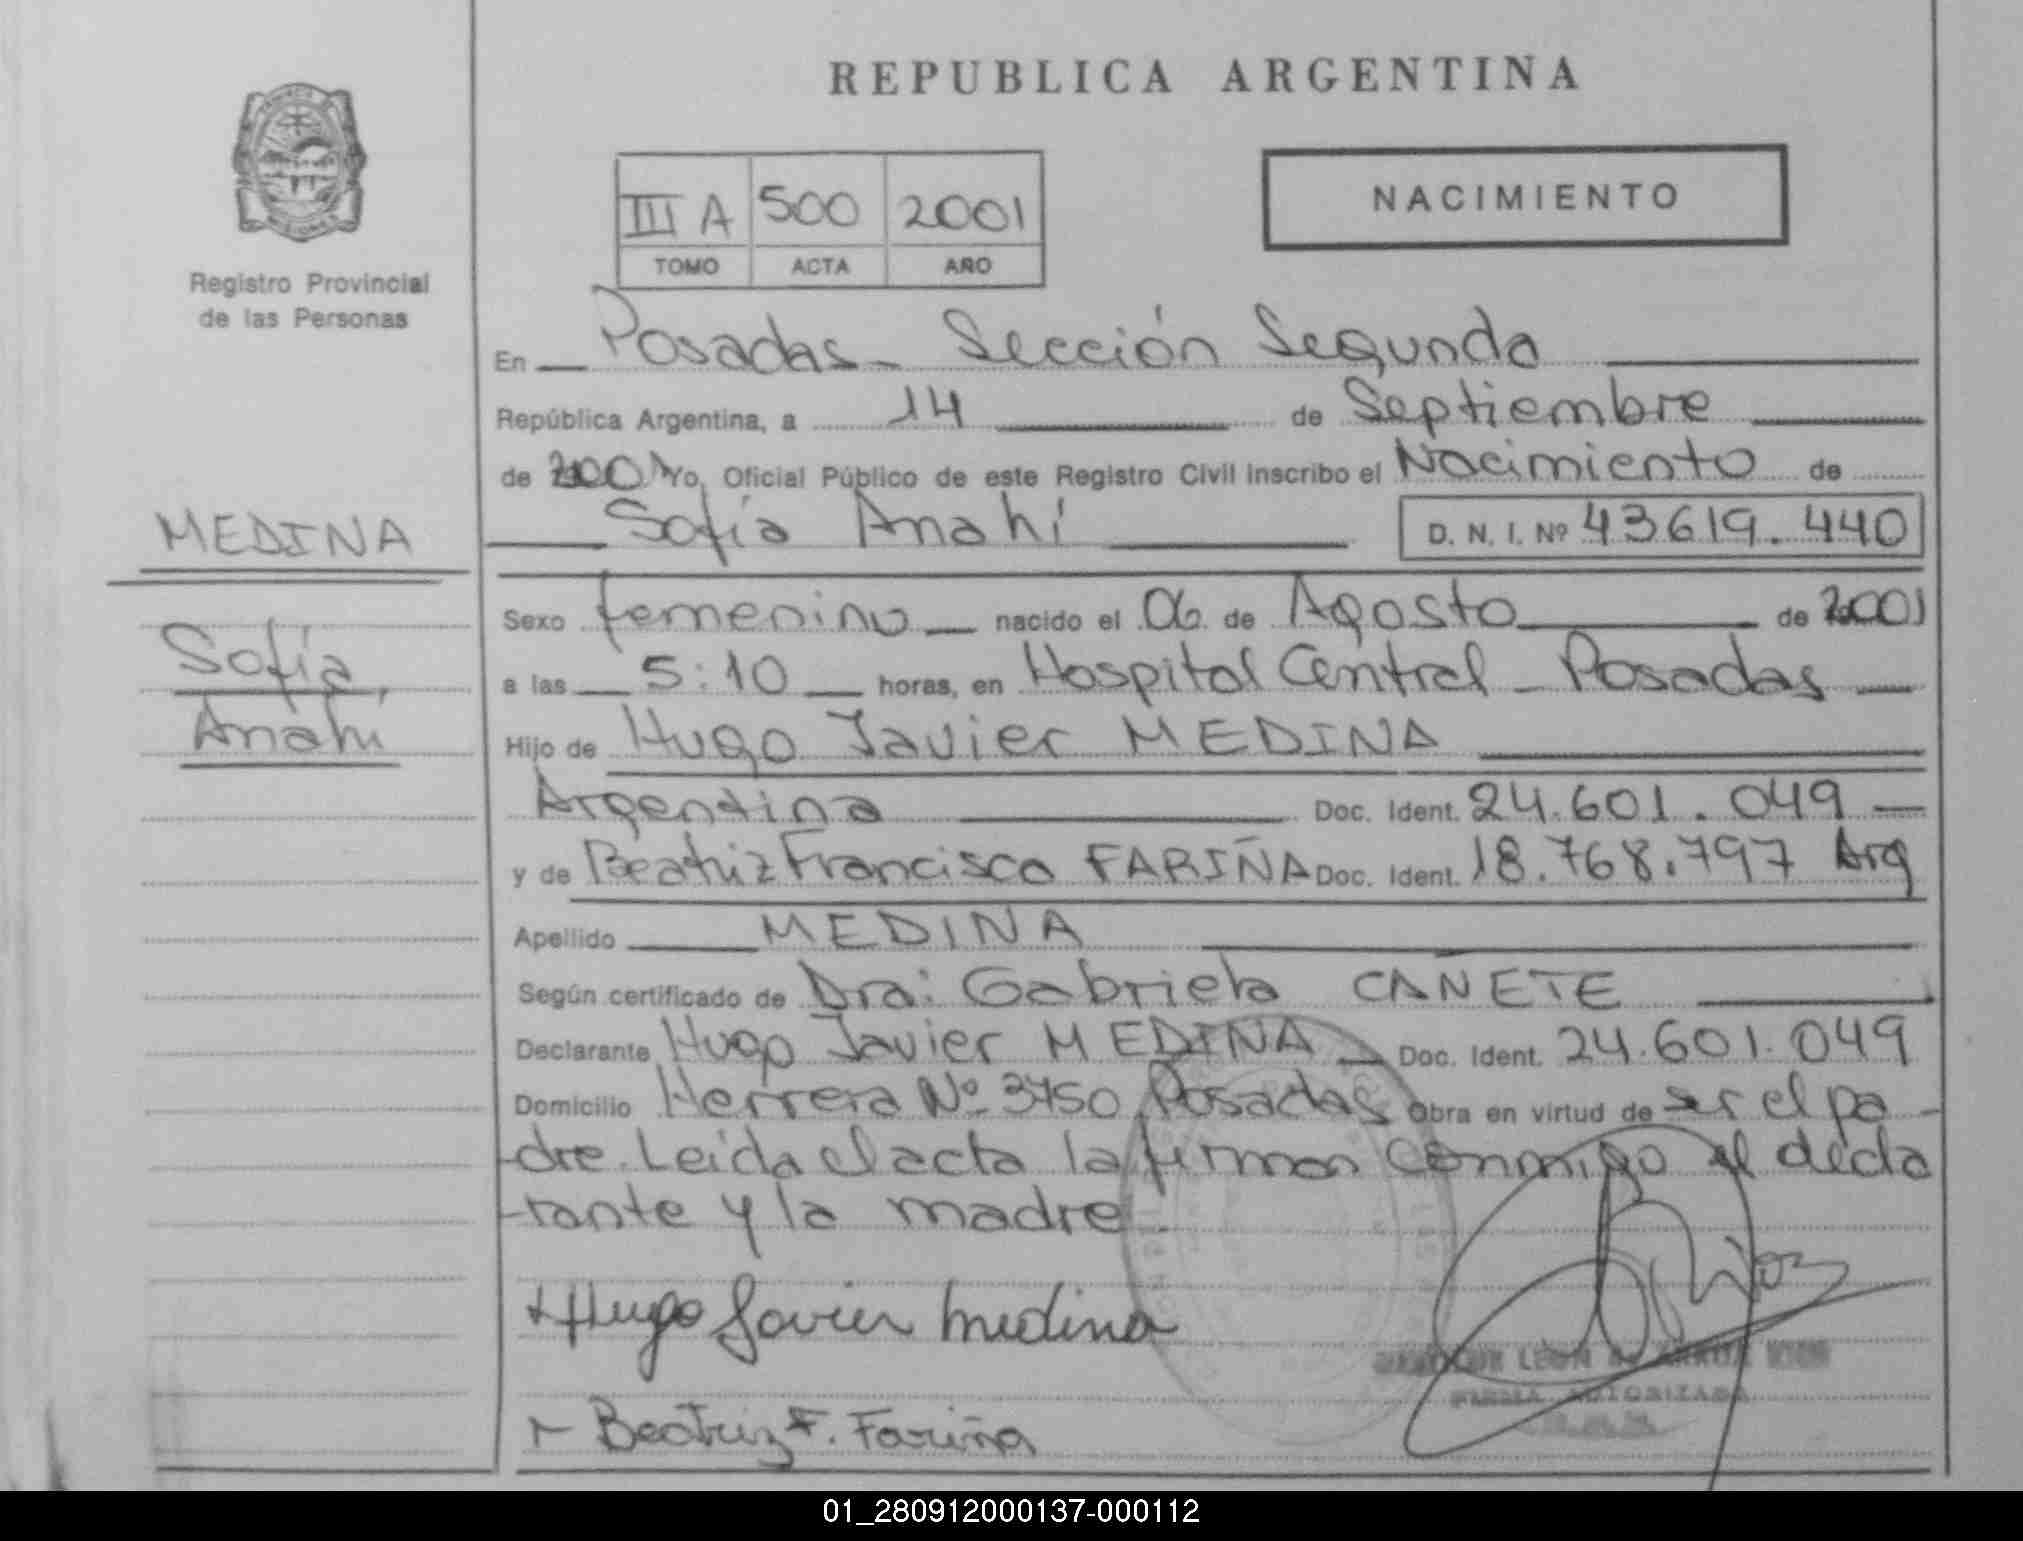 REPUBLICA ARGENTINA
NACIMIENTO
III A 500 2001
TOMO ACTA AÑO
Registro Provincial
de las Personas
En Posadas - Sección Segunda
República Argentina, a 14 de Septiembre
de 2001 Yo, Oficial Público de este Registro Civil inscribo el Nacimiento de
Sofía Anahí D. N. I. Nº 43619.440
MEDINA
Sofía
Anahí
Sexo femenino nacido el 06 de Agosto de 2001
a las 5:10 horas, en Hospital Central - Posadas
Hijo de Hugo Javier MEDINA
Argentina Doc. Ident. 24.601.049
y de Beatriz Francisca FARIÑA Doc. Ident. 18.768.797 Arg
Apellido MEDINA
Según certificado de Dra: Gabriela CANETE
Declarante Hugo Javier MEDINA Doc. Ident. 24.601.049
Domicilio Herrera Nº 3750 Posadas Obra en virtud de ser el pa-
-dre. Leida el acta la firman conmigo el decla
-rante y la madre.
Hugo Javier medina
LEON
FIRMA AUTORIZADA
Beatriz F. Fariña
01_280912000137-000112